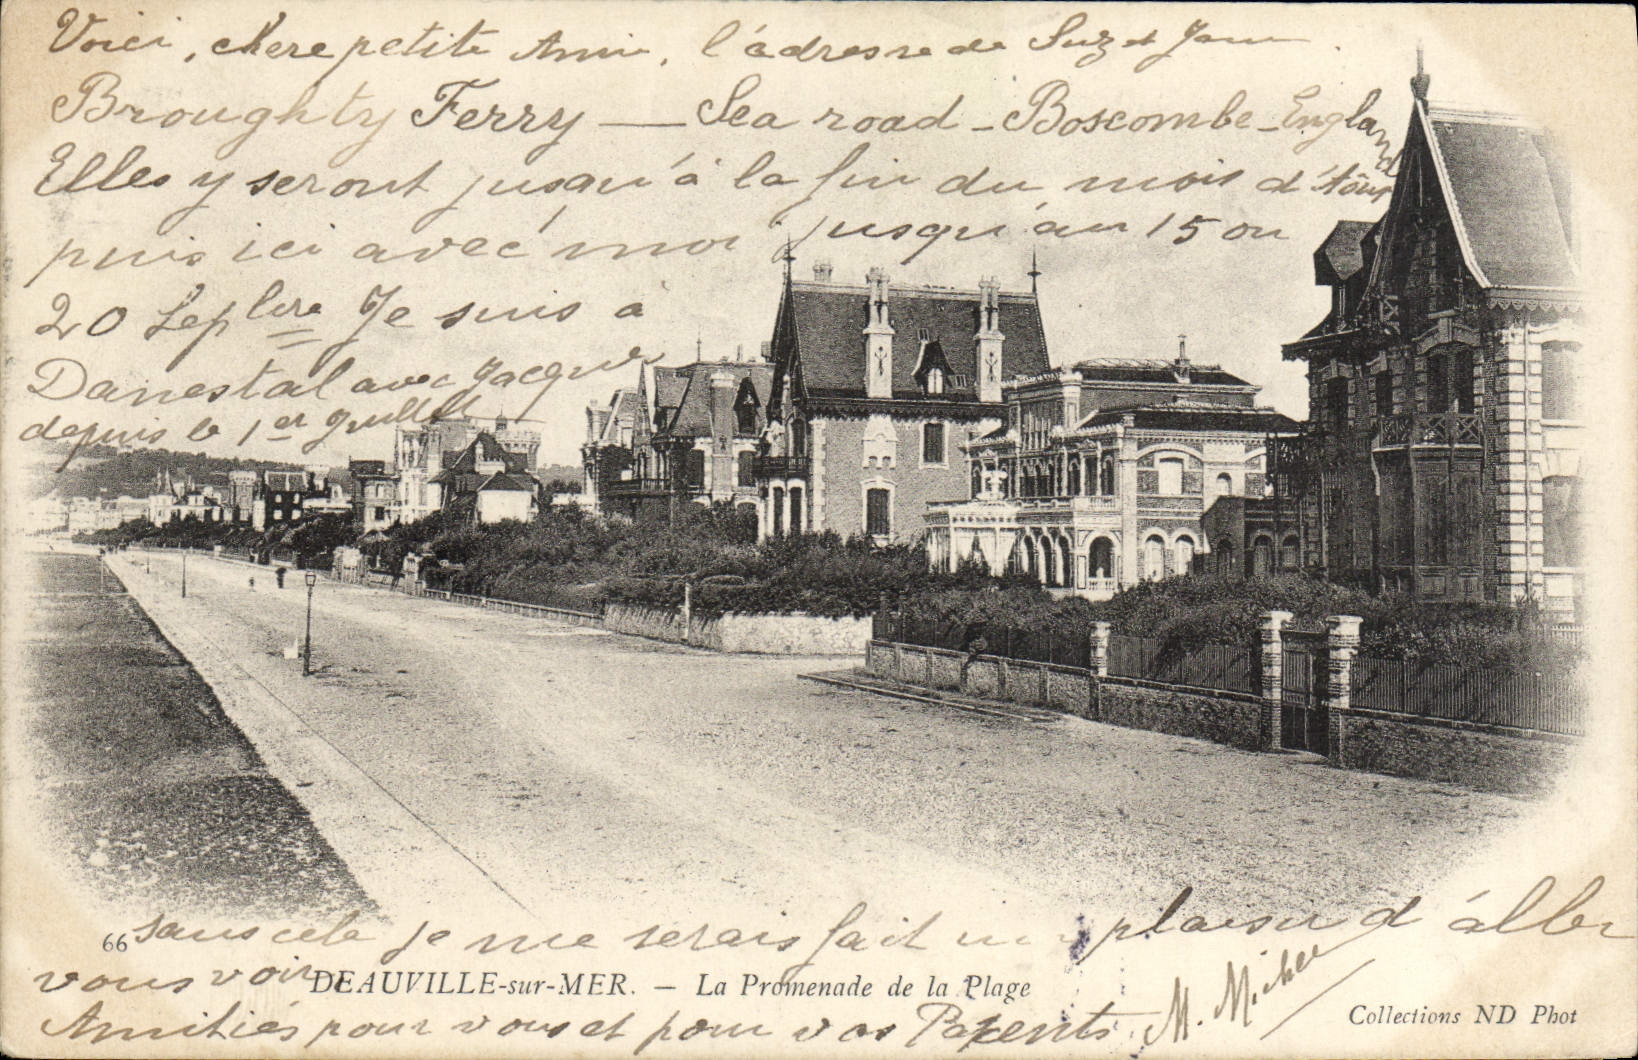 Voici, chere petite Amie, l'adresse de Suz et
Broughty Ferry — Sea road - Boscombe - England
Elles y seront jusqu'à la fin du mois d'Aôut
puis ici avec moi jusqu'au 15 ou
20 Septbre Je suis à
Danestal avec Jacques
depuis le 1er Juillet
66 sans cela je me serais fait un plaisir d'aller
vous voir
DEAUVILLE-sur-MER. — La Promenade de la Plage
Amitiés pour vous et pour vos Parents. M. Michee
Collections ND Phot